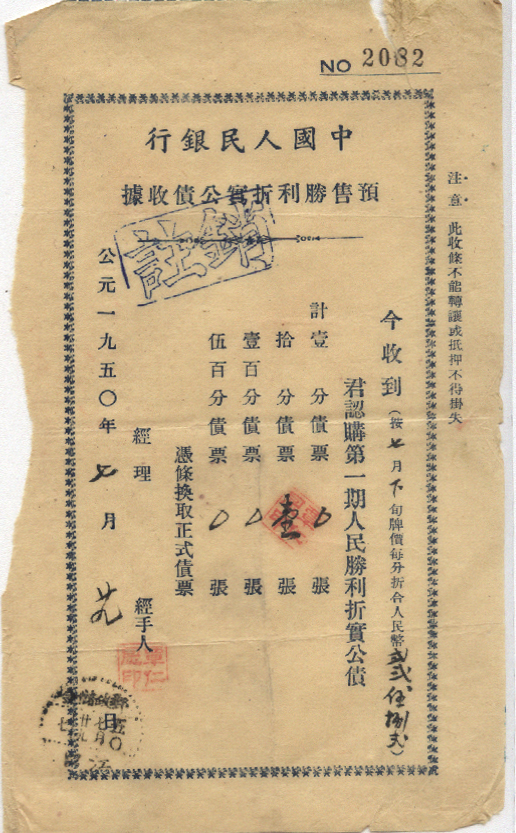 NO 2082
中國人民銀行
預售勝利折實公債收據
註銷
注意 此收條不能轉讓或抵押不得掛失
今收到(按七月下旬牌價每分折合人民幣
君認購第一期人民勝利折實公債
計壹分債票0張
拾分債票壹張
壹百分債票0張
伍百分債票0張
憑條換取正式債票
經理 經手人
公元一九五〇年七月廿九